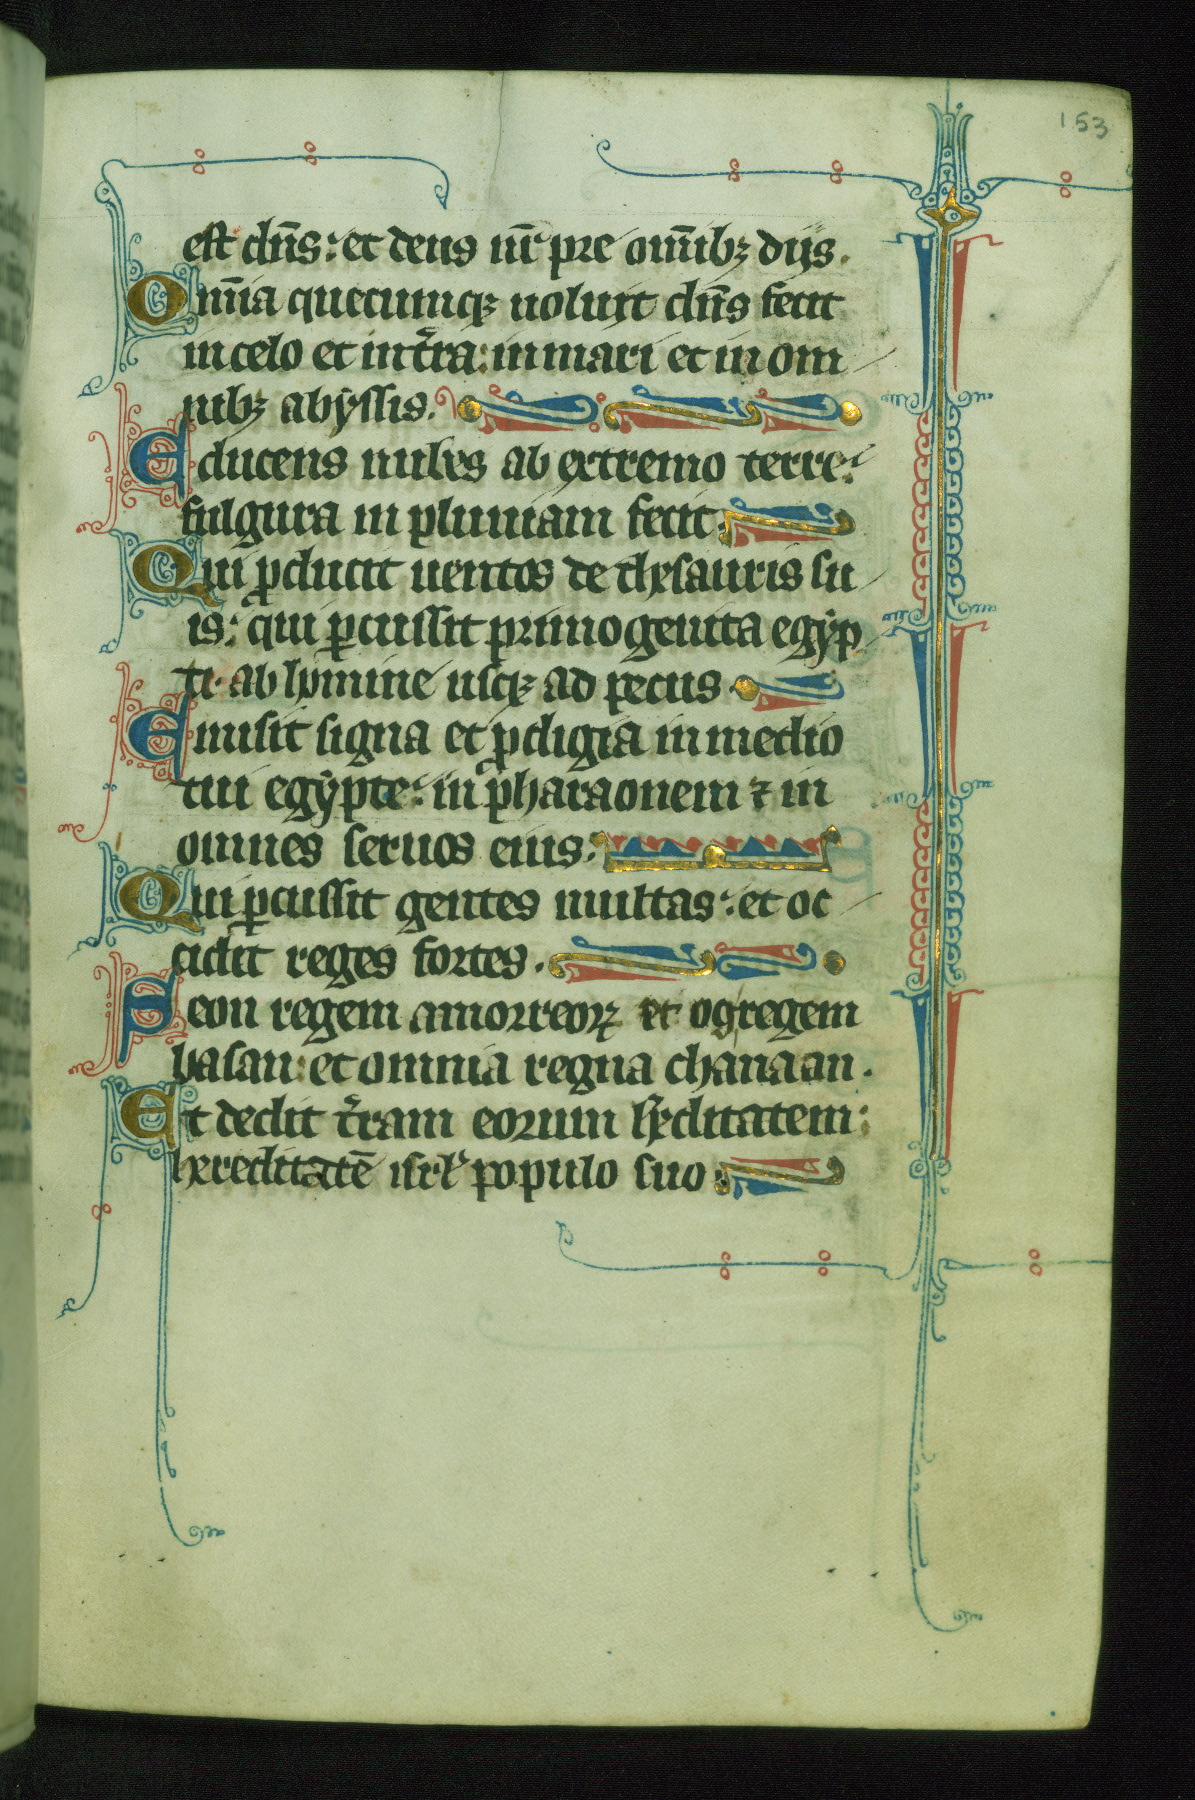 153
est dn̄s: et deus nr̄ pre om̄ibꝫ dijs.
Omīa quecumqꝫ uoluit dn̄s fecit
in celo et in tr̄a: in mari et in om
nibꝫ abyssis.
Educens nubes ab extremo terre:
fulgura in pluuiam fecit.
Qui ꝓducit uentos de thesauris su
is: qui ꝑcussit primogenita egyp
ti ab homine usqꝫ ad pecus.
Emisit signa et ꝓdigia in medio
tui egypte: in pharaonem ⁊ in
omnes seruos eius.
Qui ꝑcussit gentes multas: et oc
cidit reges fortes.
Seon regem amorreoꝝ et og regem
basan: et omnia regna chanaan.
Et dedit tr̄am eorum h̄editatem:
hereditatē isrl̄ populo suo.